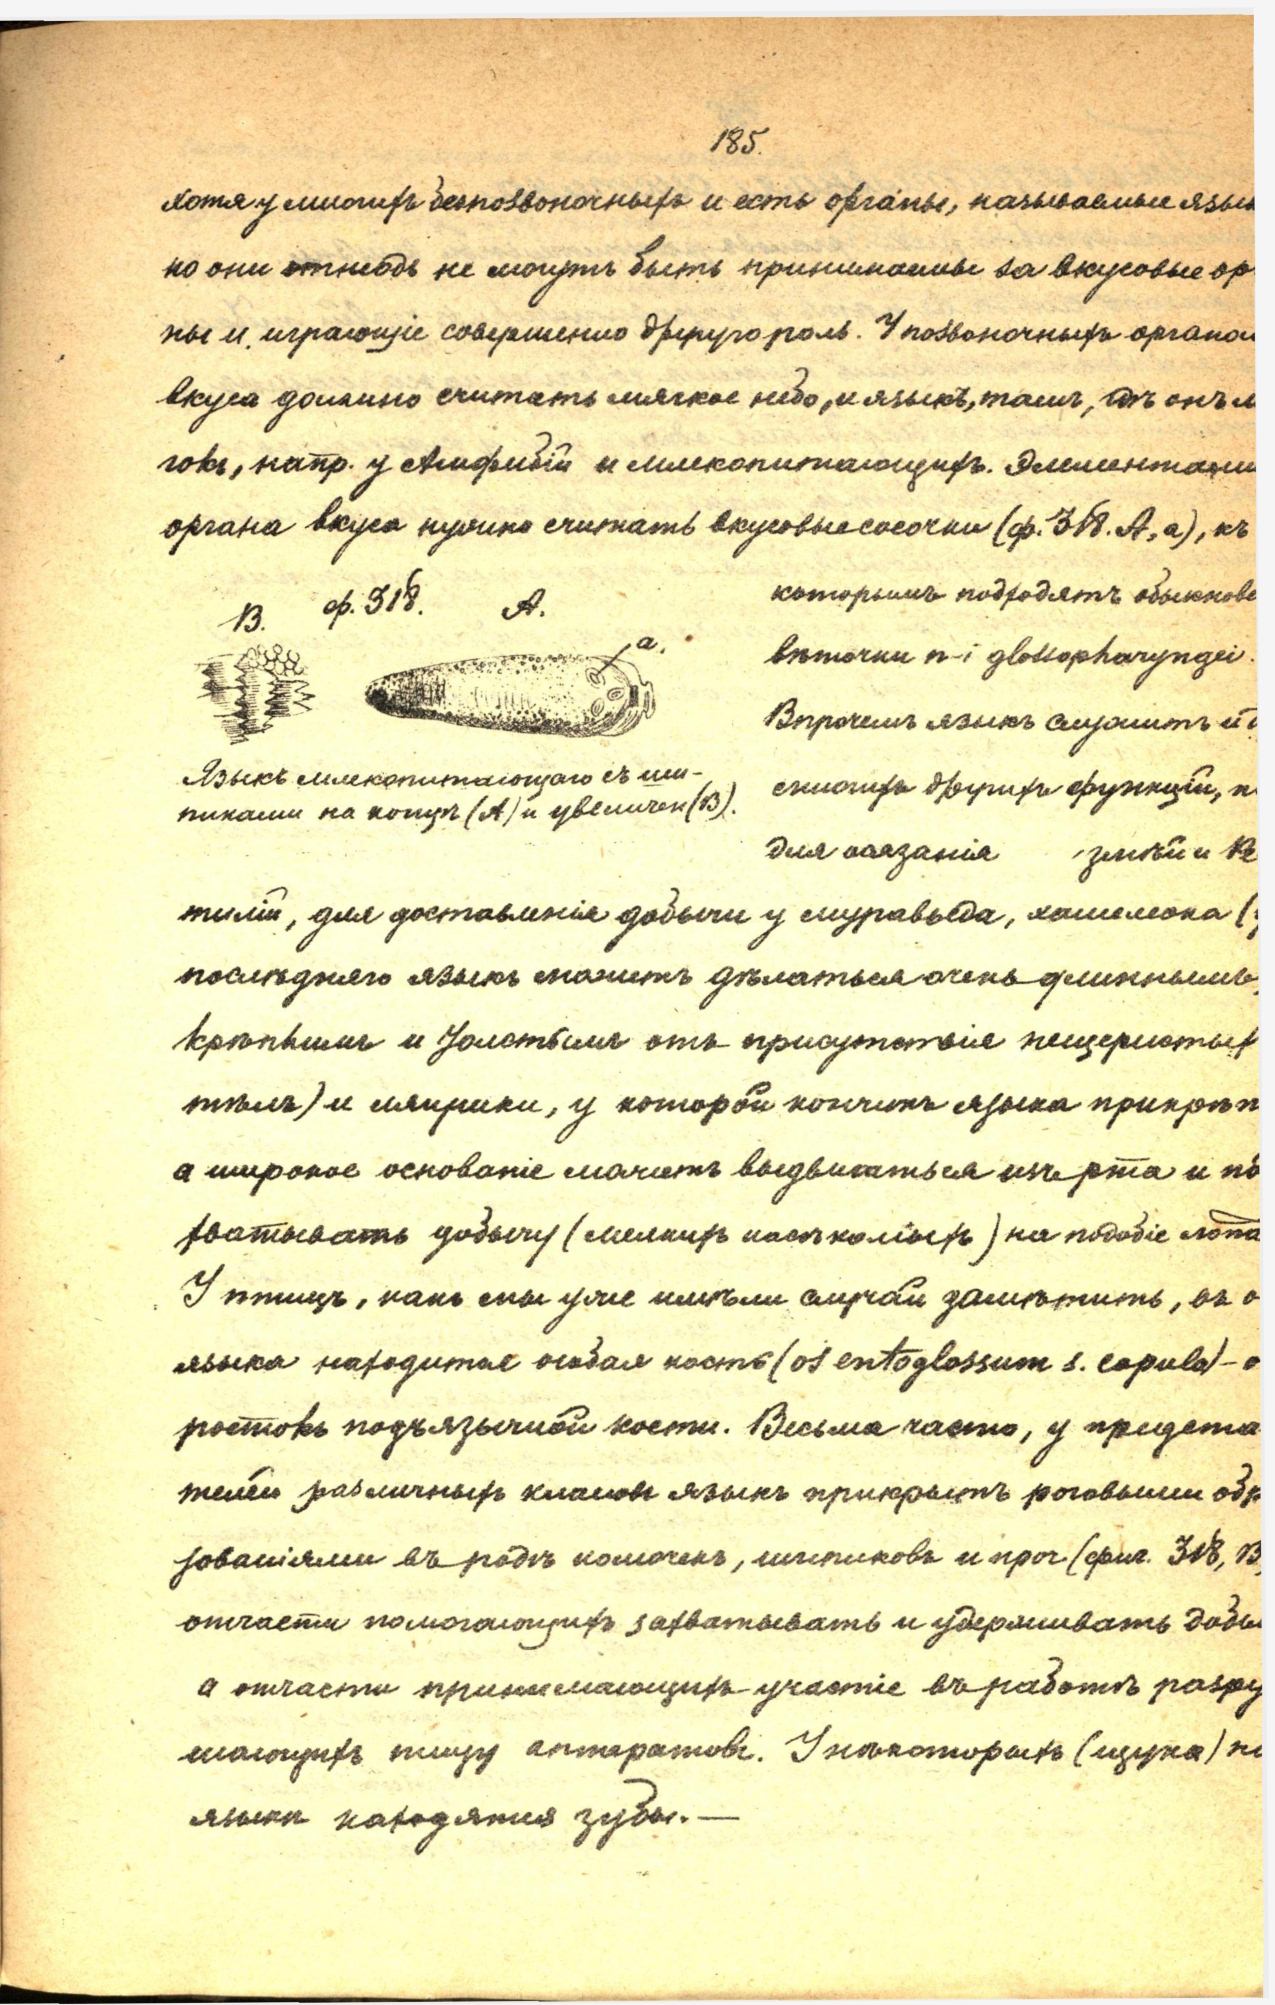 185.
хотя у многихъ безпозвоночныхъ и есть органы, называемые язык
но они отнюдь не могутъ быть принимаемы за вкусовые ор
ны и играющіе совершенно другую роль. У позвоночныхъ органом
вкуса должно считать мягкое небо, и языкъ, тамъ, гдѣ онъ м
гокъ, напр. у Амфибій и млекопитающихъ. Элементами
органа вкуса нужно считать вкусовые сосочки (ф. 318. А, а), къ
которымъ подходятъ обыкнове
вѣточки n-i glossopharyngei.
Впрочемъ языкъ служитъ и д
множихъ другихъ функцій, н
для осязанія змѣй и Ре
ф. 318.
В.
А.
а.
Языкъ млекопитающаго съ ши-
пиками на концѣ (А) и увеличен (В).
тилій, для доставленія добычи у муравьѣда, хамелеона (у
послѣдняго языкъ можетъ дѣлаться очень длиннымъ,
крѣпкимъ и толстымъ отъ присутствія пещеристых
тѣлъ) и лягушки, у которой кончикъ языка прикрѣп
а широкое основаніе можетъ выдвигаться изъ рта и по
хватывать добычу (мелкихъ насѣкомыхъ) на подобіе лопа
У птицъ, какъ мы уже имѣли случай замѣтить, въ о
языка находится особая кость (os entoglossum s. copula) - о
ростокъ подъязычной кости. Весьма часто, у предста
телей различныхъ классовъ языкъ прикрытъ роговыми обр
зованіями въ родѣ колючекъ, шипиковъ и проч (фиг. 318, В,
отчасти помогающихъ захватывать и удерживать добы
а отчасти принимающихъ участіе въ работѣ разру
шающихъ пищу аппаратовъ. У нѣкоторыхъ (щука) на
языкѣ находятся зубы. —